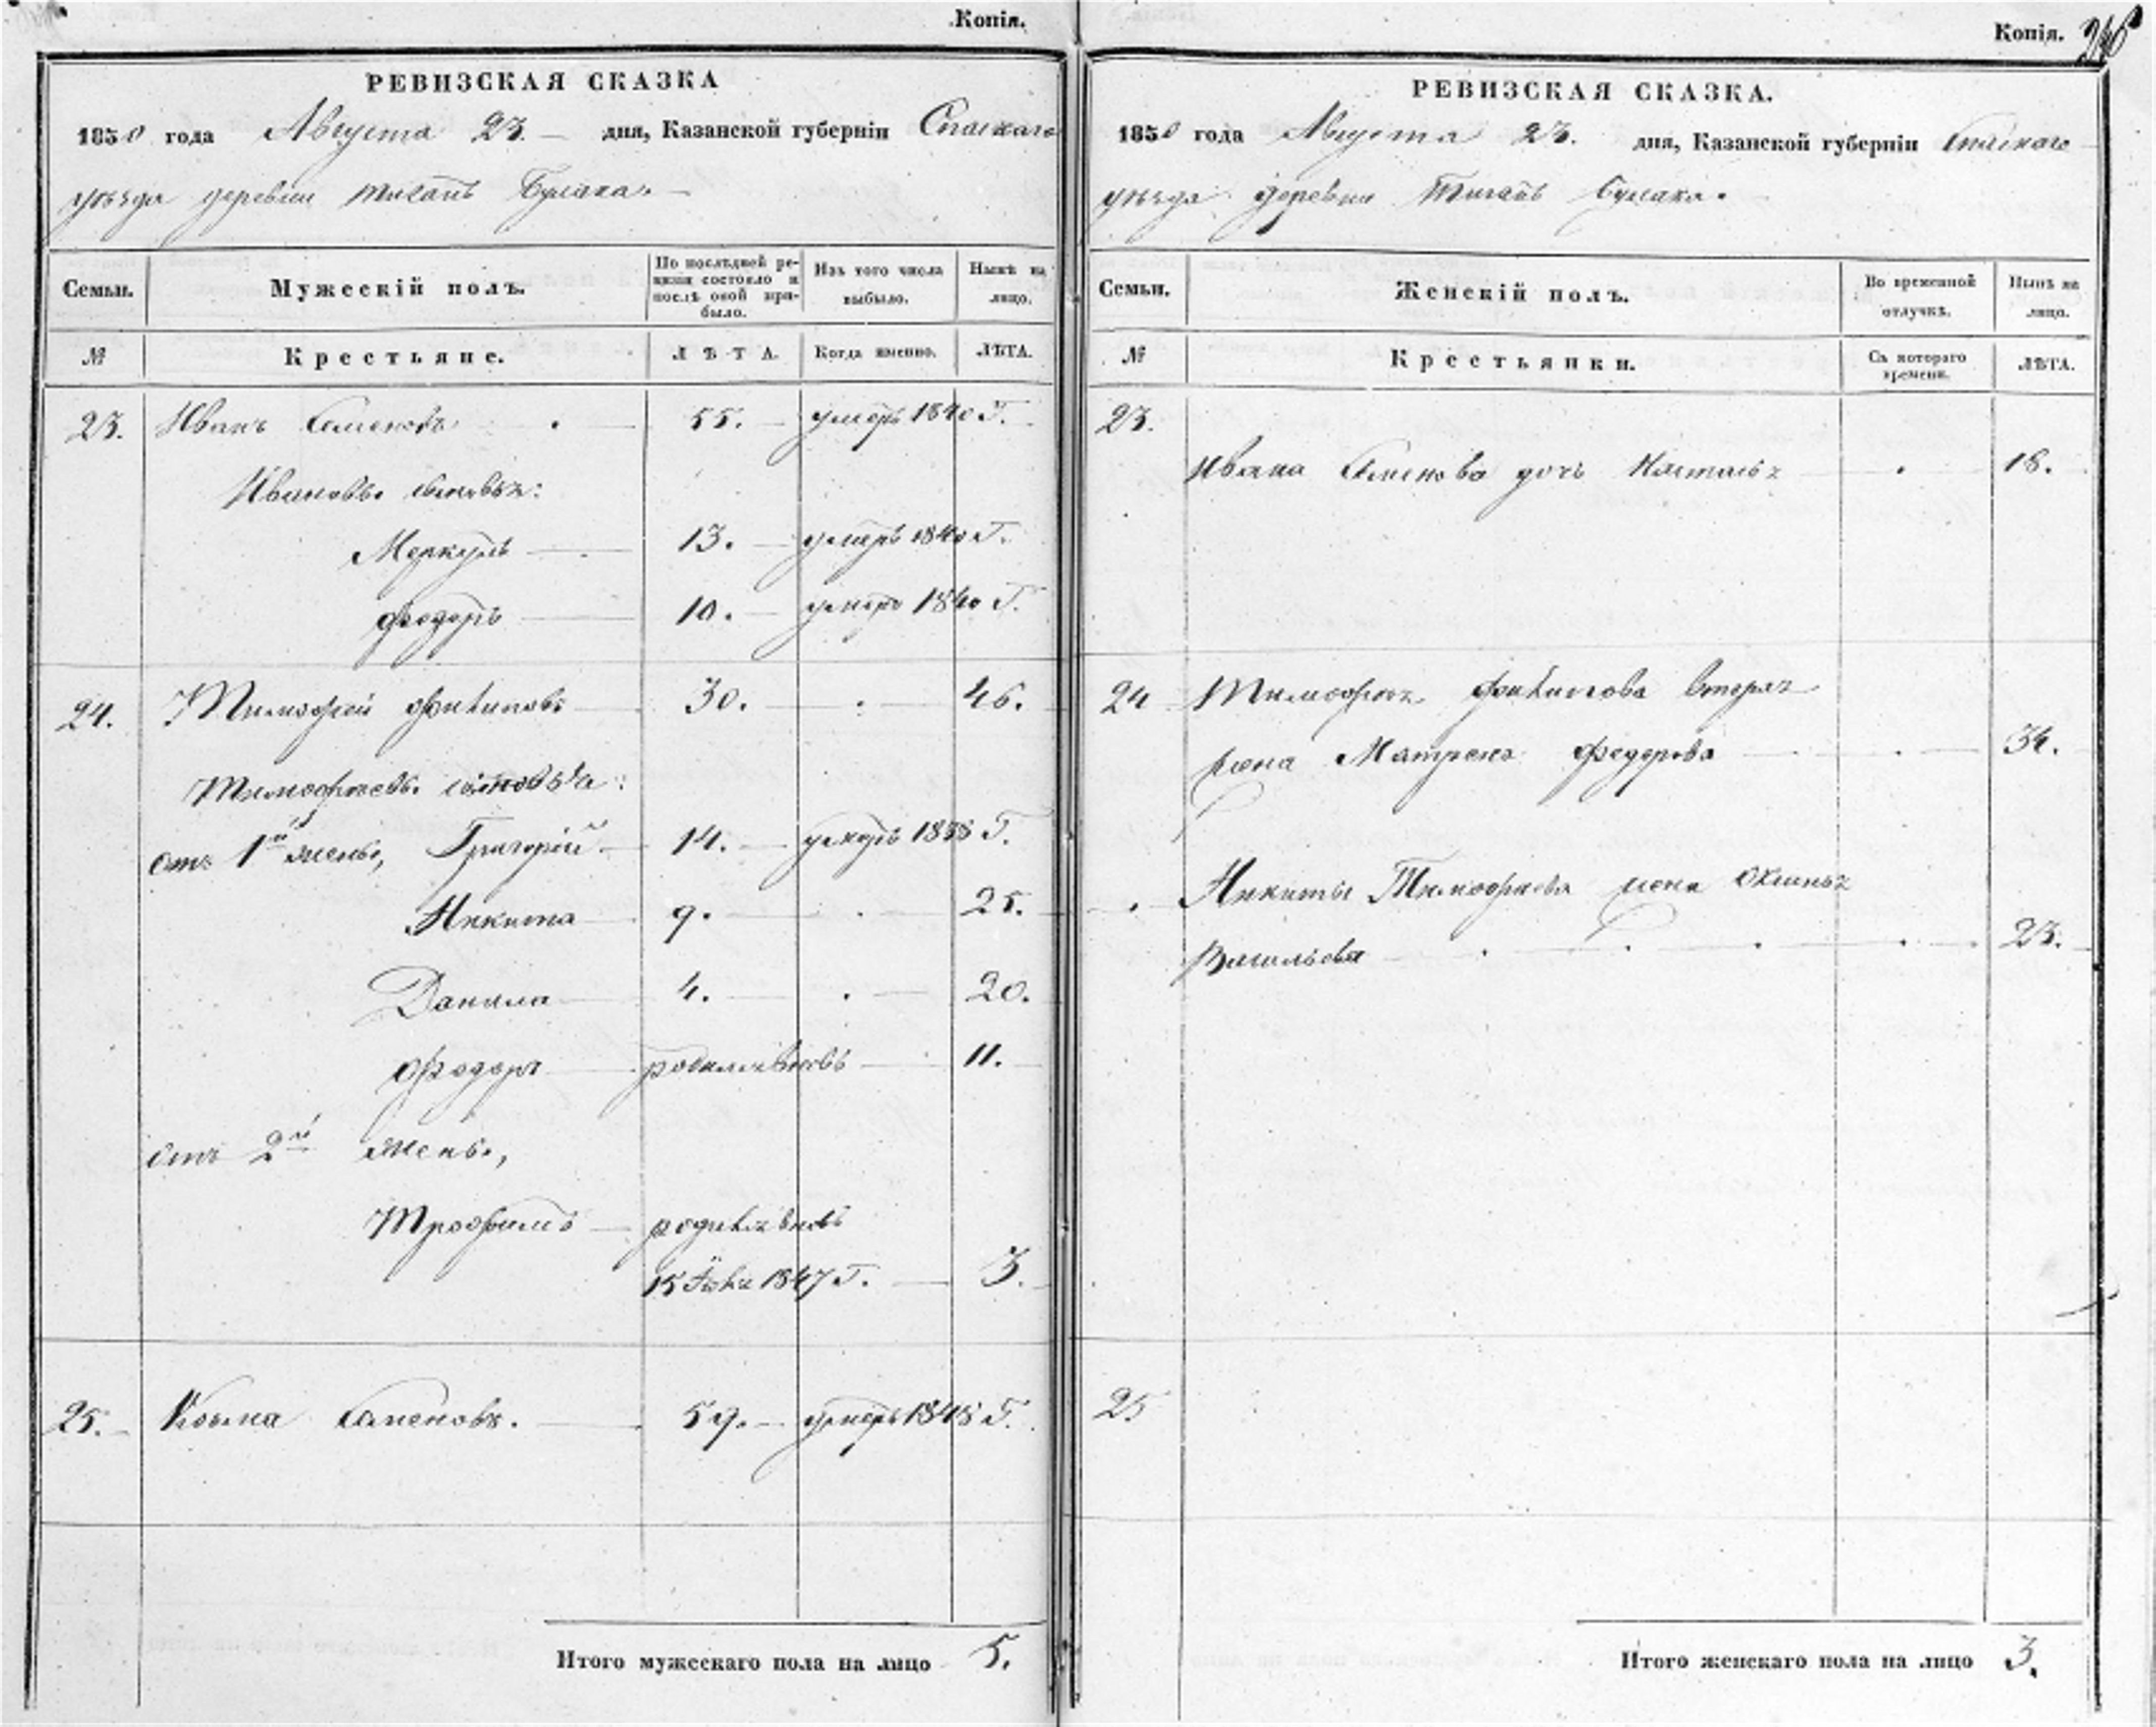 Копія.
РЕВИЗСКАЯ СКАЗКА
1850 года Августа 23. дня, Казанской губерніи Спаскаго
уѣзда деревни Тиганъ Булака.
Семьи. Мужескій полъ. По послѣдней ревизіи состояло и послѣ оной прибыло. Изъ того числа выбыло. Нынѣ на лицо.
№ Крестьяне. ЛѢТА. Когда именно. ЛѢТА.
23. Иванъ Семеновъ 55. умеръ 1840 Г.
Ивановы сыновья:
Меркулъ 13. умеръ 1840 Г.
Федоръ 10. умеръ 1840 Г.
24. Тимофей Филиповъ 30. 46.
Тимофеевы сыновья:
отъ 1й жены, Григорій 14. умеръ 1838 Г.
Никита 9. 25.
Данила 4. 20.
Федоръ родился вновь 11.
отъ 2й жены,
Трофимъ родился вновь
15 Іюля 1847 Г. 3.
25. Козма Семеновъ. 59. умеръ 1848 Г.
Итого мужескаго пола на лицо 5.
Копія. 246
РЕВИЗСКАЯ СКАЗКА.
1850 года Августа 23. дня, Казанской губерніи Спаскаго
уѣзда деревни Тиганъ Булака.
Семьи. Женскій полъ. Во временной отлучкѣ. Нынѣ на лицо.
№ Крестьянки. Съ котораго времени. ЛѢТА.
23.
Ивана Семенова дочь 18.
24 Тимофея Филипова вторая
жена Матрена Федорова 34.
Никиты Тимофеева жена
Васильева 23.
25
Итого женскаго пола на лицо 3.